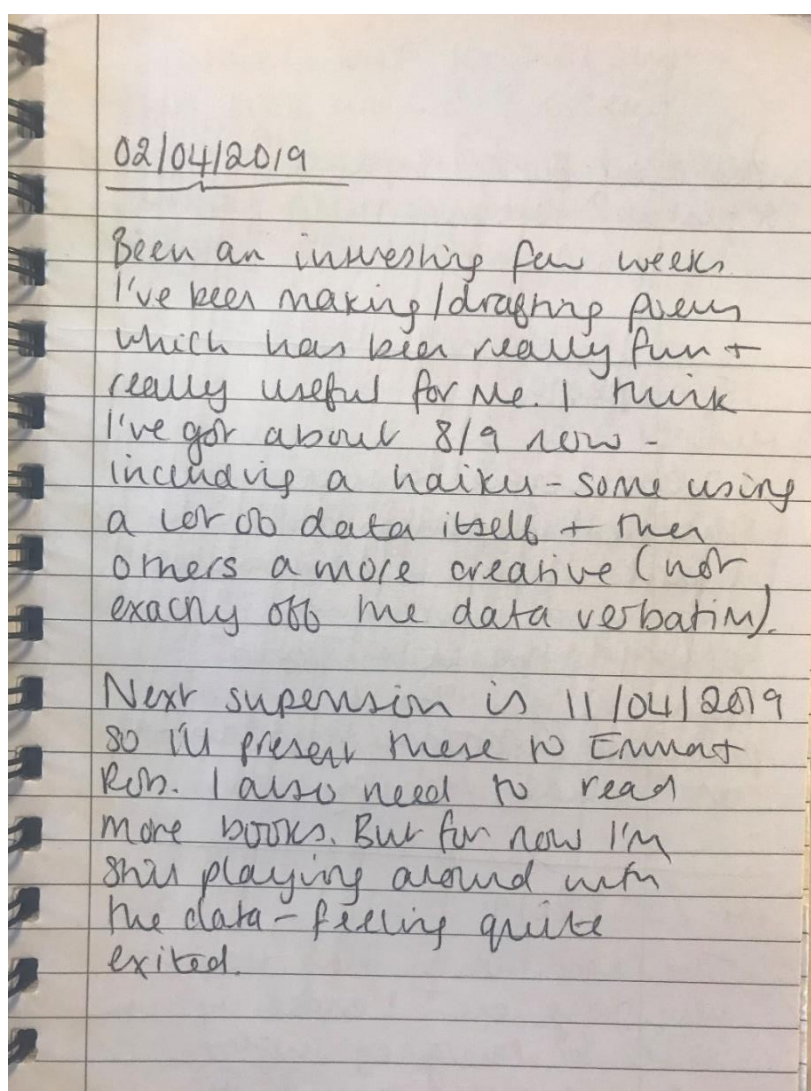 02/04/2019
Been an interesting few weeks
I've been making/drafting poems
which has been really fun +
really useful for me. I think
I've got about 8/9 now -
including a haiku - some using
a lot of data itself + then
others a more creative (not
exactly off the data verbatim).
Next supervision is 11/04/2019
so I'll present these to Emma +
Rob. I also need to read
more books. But for now I'm
still playing around with
the data - feeling quite
exited.